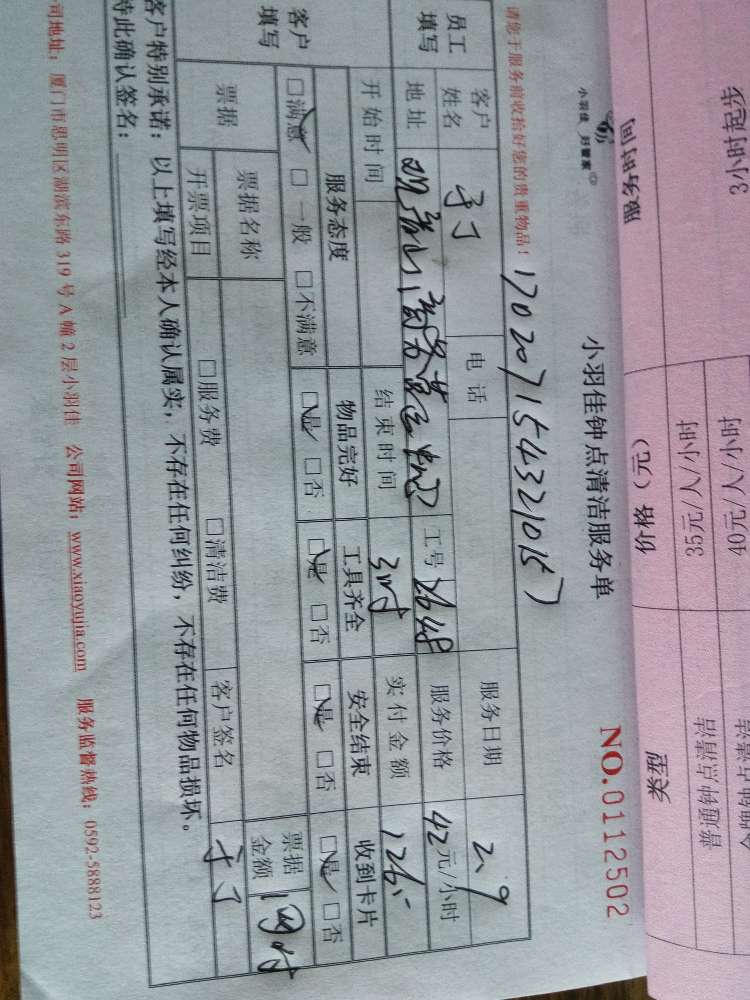 3小时起步
服务时间 价格（元） 类型
35元/人/小时 普通钟点清洁
40元/人/小时
小羽佳 好管家
小羽佳钟点清洁服务单
NO.0112502
请您于服务前收拾好您的贵重物品！
员工填写
客户姓名 电话 服务日期 2.9
地址 工号 2648 服务价格 42元/小时
开始时间 结束时间 3时 实付金额 126
客户填写
服务态度 物品完好 工具齐全 安全结束 收到卡片
□满意 □一般 □不满意 □是 □否 □是 □否 □是 □否 □是 □否
票据 票据名称 票据金额
开票项目 □服务费 □清洁费 客户签名
客户特别承诺：以上填写经本人确认属实，不存在任何纠纷，不存在任何物品损坏。
特此确认签名：
司地址：厦门市思明区湖滨东路319号A幢2层小羽佳 公司网站：www.xiaoyujia.com 服务监督热线：0592-5888123